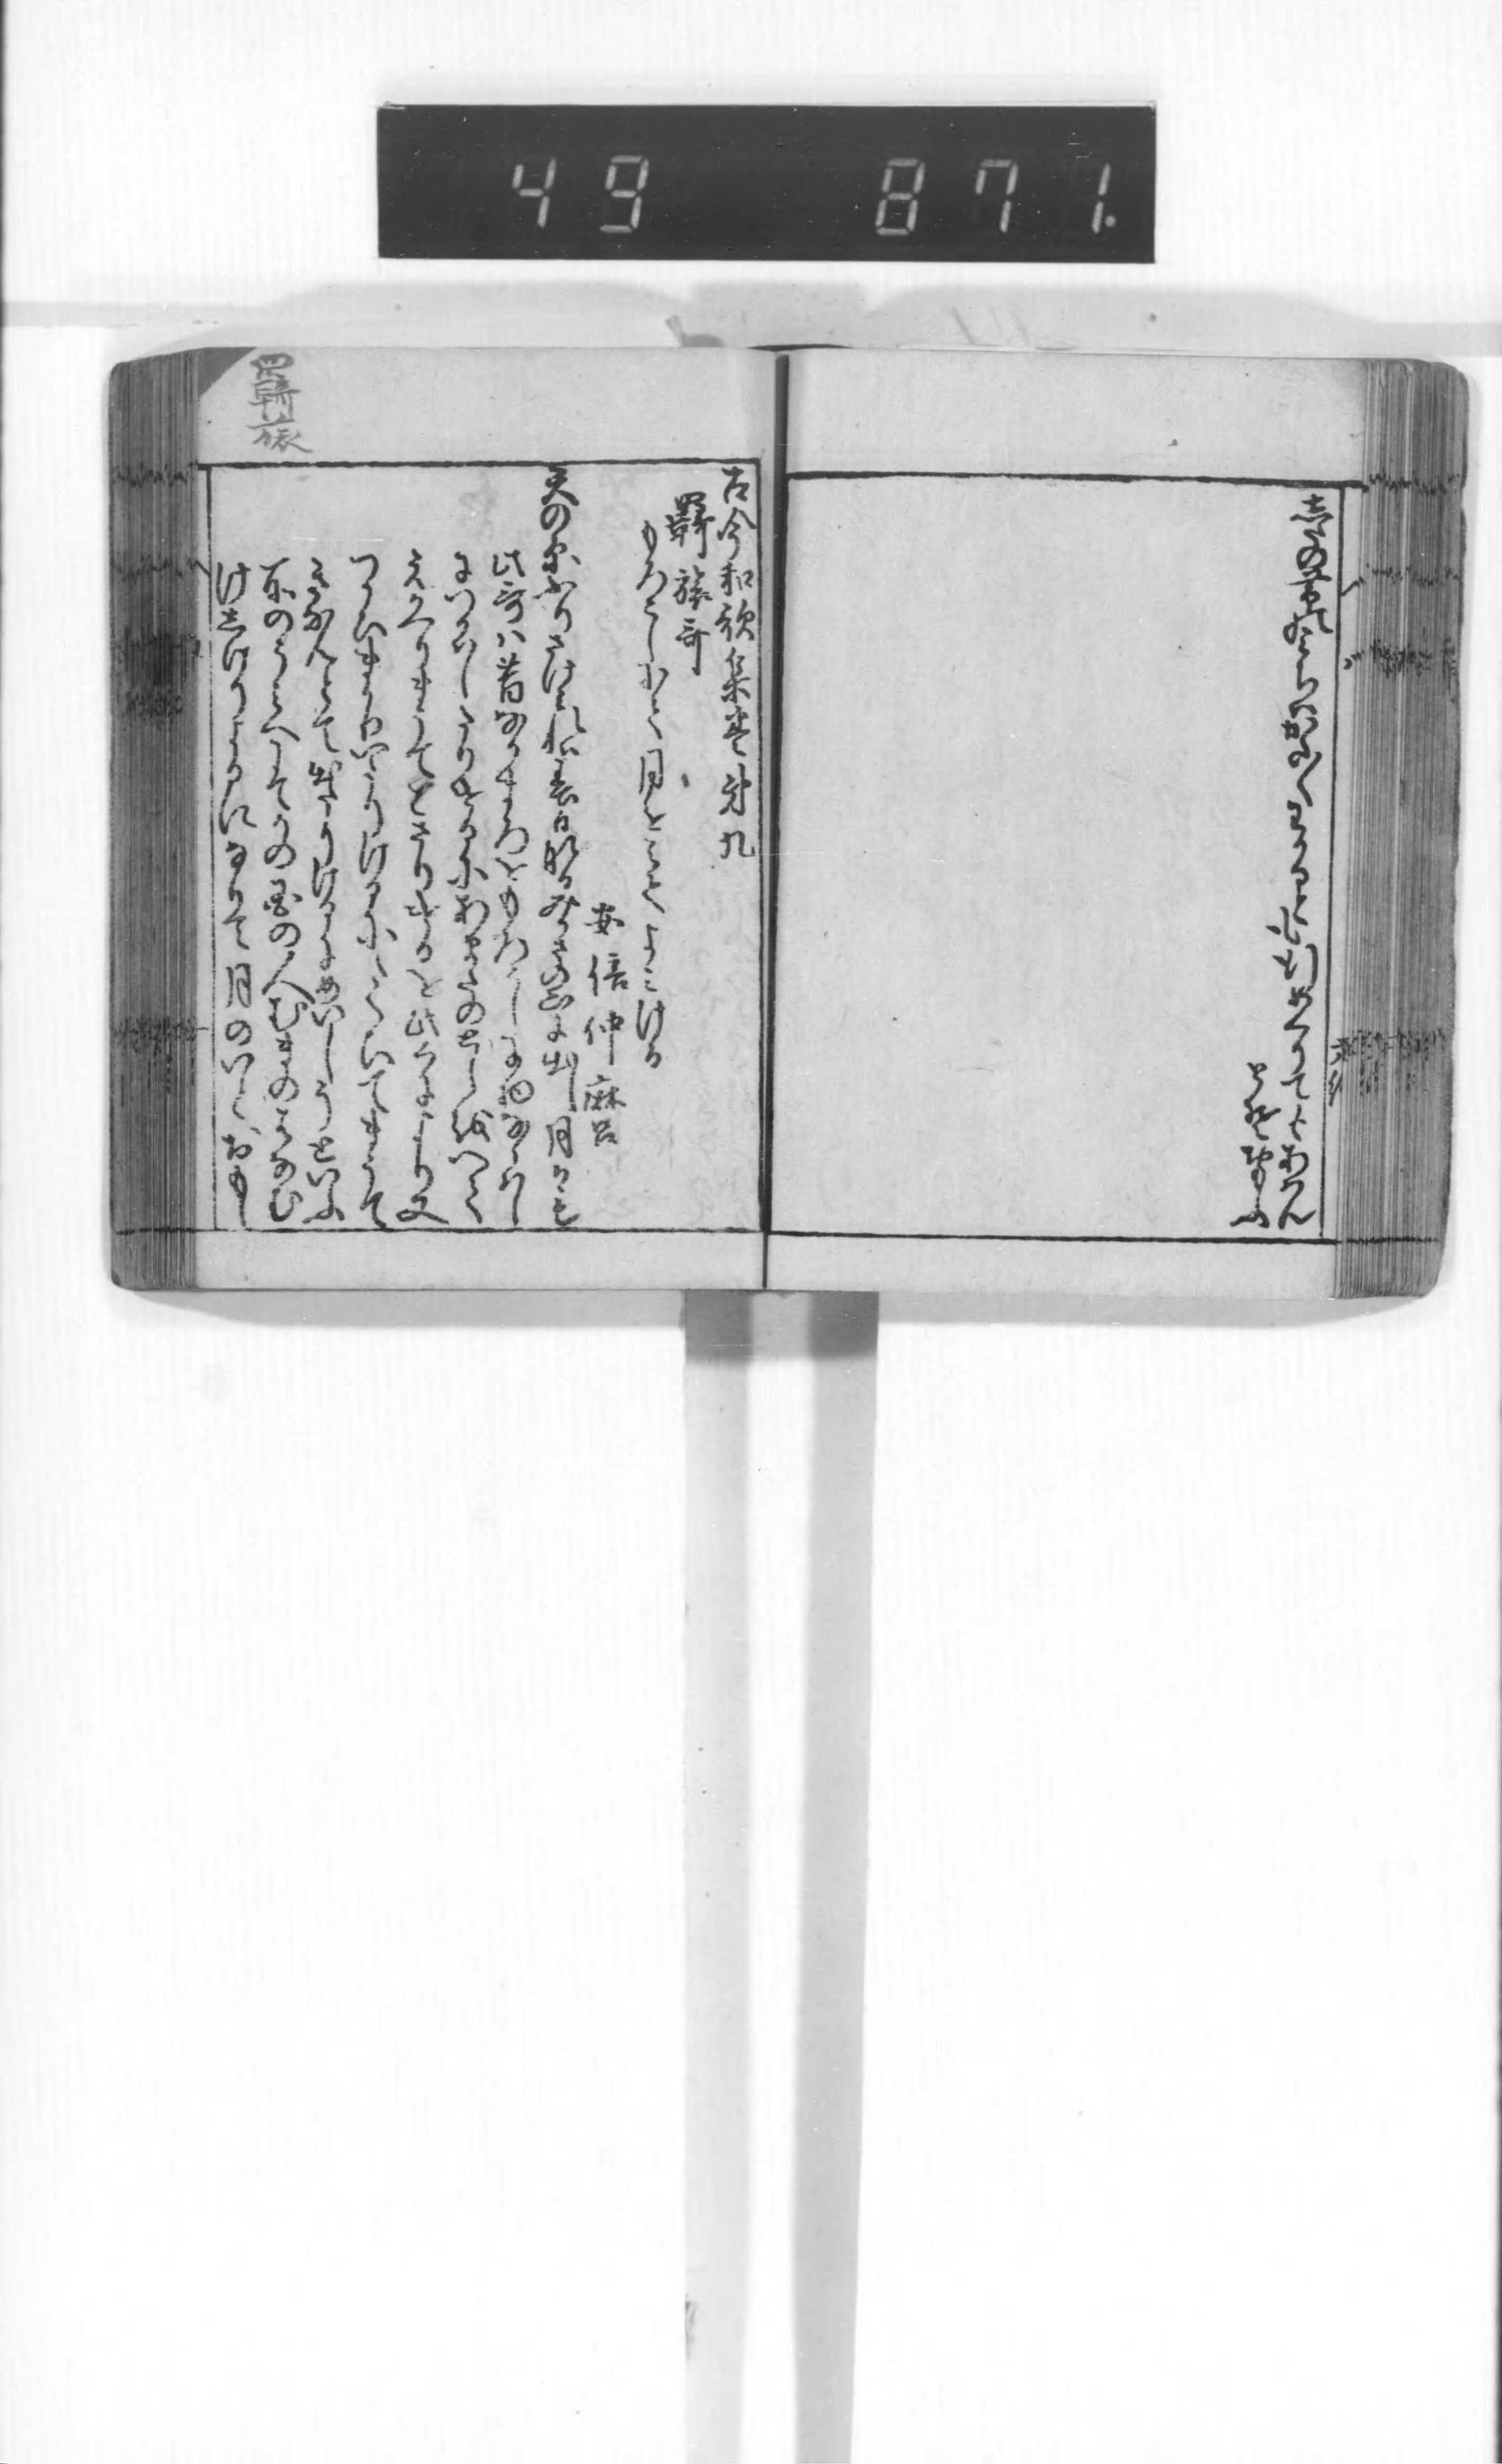 49 871.
したのおひのみちはかた〳〵わかるともゆきめくりてもあはん
とそおもふ
羇旅
古今和歌集巻第九
羇旅哥
もろこしにて月をみてよみける
安倍仲麻呂
天の原ふりさけみれは春日なるみかさの山に出し月かも
此哥ハ昔なかまろをもろこしに物ならはし
につかはしたりけるにあまたのとしをへて
えかへりまうてこさりけるを此くにより又
つかひまかりいたりけるにたくひてまうて
きなんとて出たりけるにめいしうといふ
所のうみへにてかの国の人むまのはなむ
けしけりよるになりて月のいとおもし